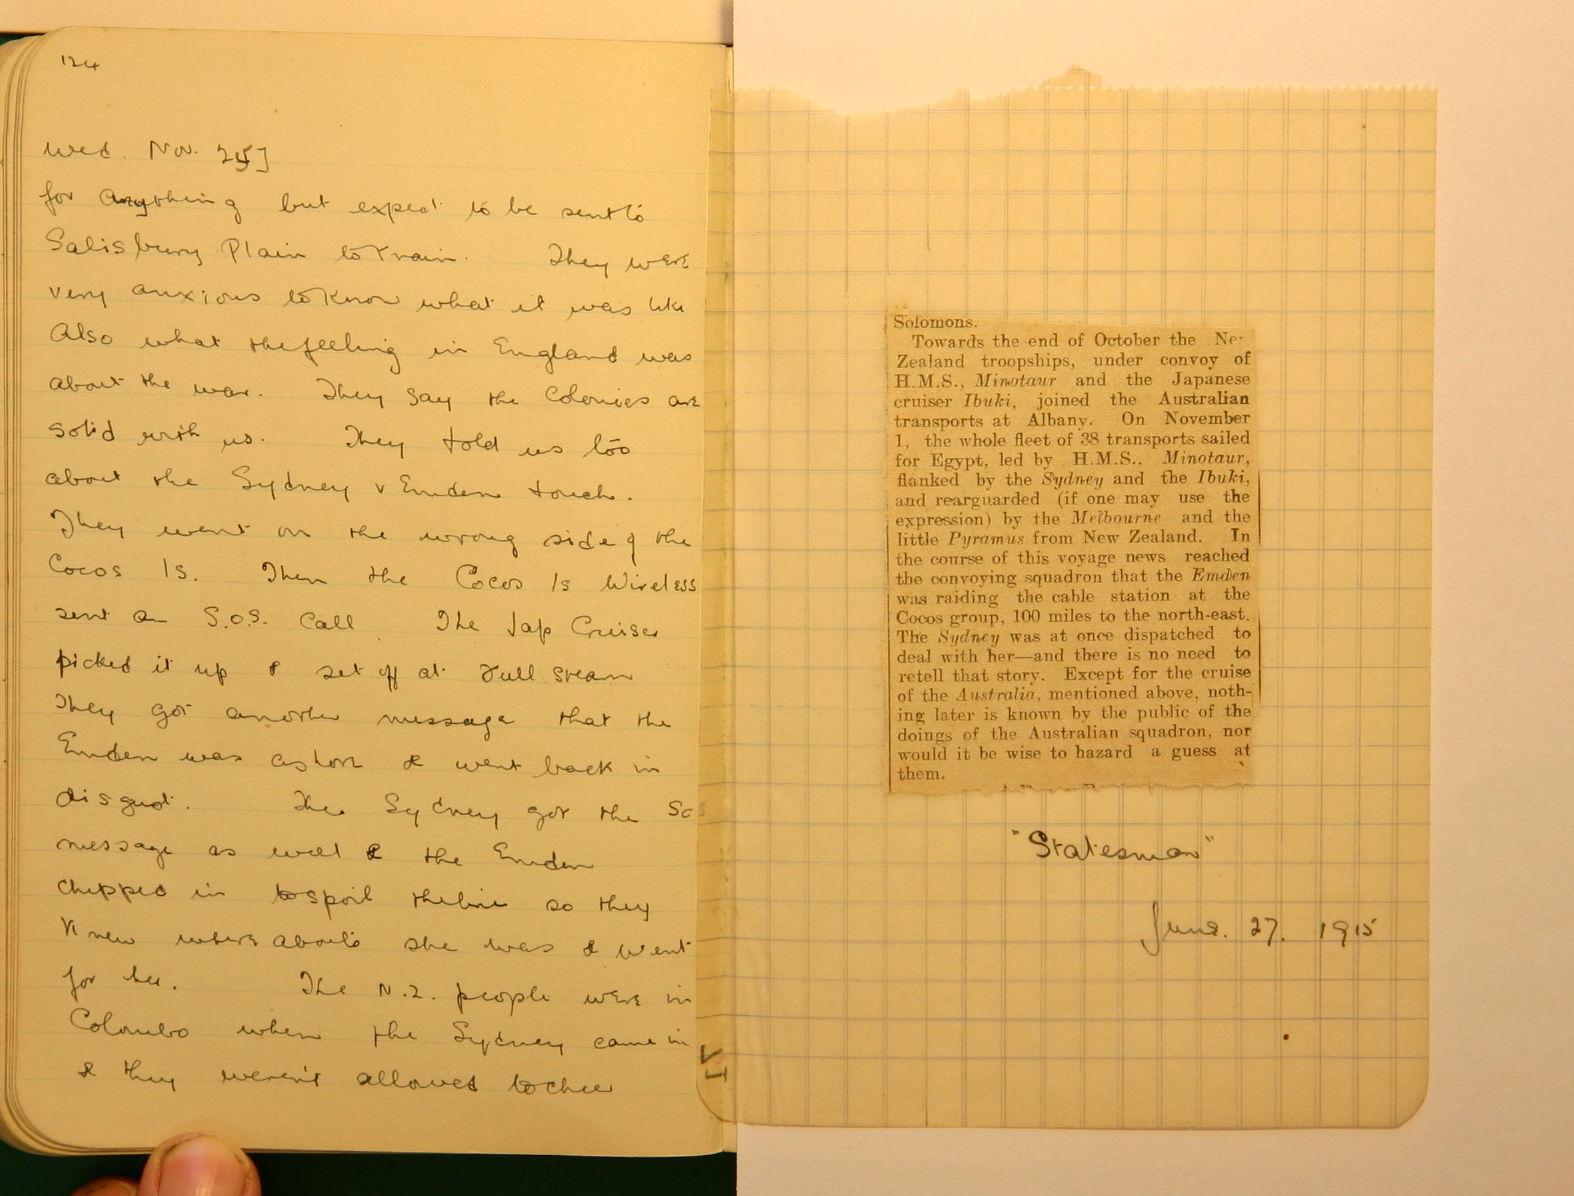 124
Wed. Nov. 25]
for anything but expect to be sent to
Salisbury Plain to train. They were
very anxious to know what it was like
Also what the feeling in England was
about the war. They say the Colonies are
solid with us. They told us too
about the Sydney v Emden touch.
They went on the wrong side of the
Cocos Is. Then the Cocos Is Wireless
sent an S.O.S. Call. The Jap Cruiser
picked it up & set off at full steam
They got another message that the
Emden was ashore & went back in
disgust. The Sydney got the SOS
message as well & the Emden
chipped in to spoil the line so they
knew whereabouts she was & went
for her. The N.Z. people were in
Colombo when the Sydney came in
& they weren't allowed to cheer
Solomons.
Towards the end of October the Ne-
Zealand troopships, under convoy of
H.M.S., Minotaur and the Japanese
cruiser Ibuki, joined the Australian
transports at Albany. On November
1, the whole fleet of 38 transports sailed
for Egypt, led by H.M.S., Minotaur,
flanked by the Sydney and the Ibuki,
and rearguarded (if one may use the
expression) by the Melbourne and the
little Pyramus from New Zealand. In
the course of this voyage news reached
the convoying squadron that the Emden
was raiding the cable station at the
Cocos group, 100 miles to the north-east.
The Sydney was at once dispatched to
deal with her—and there is no need to
retell that story. Except for the cruise
of the Australia, mentioned above, noth-
ing later is known by the public of the
doings of the Australian squadron, nor
would it be wise to hazard a guess at
them.
"Statesman"
June. 27. 1915